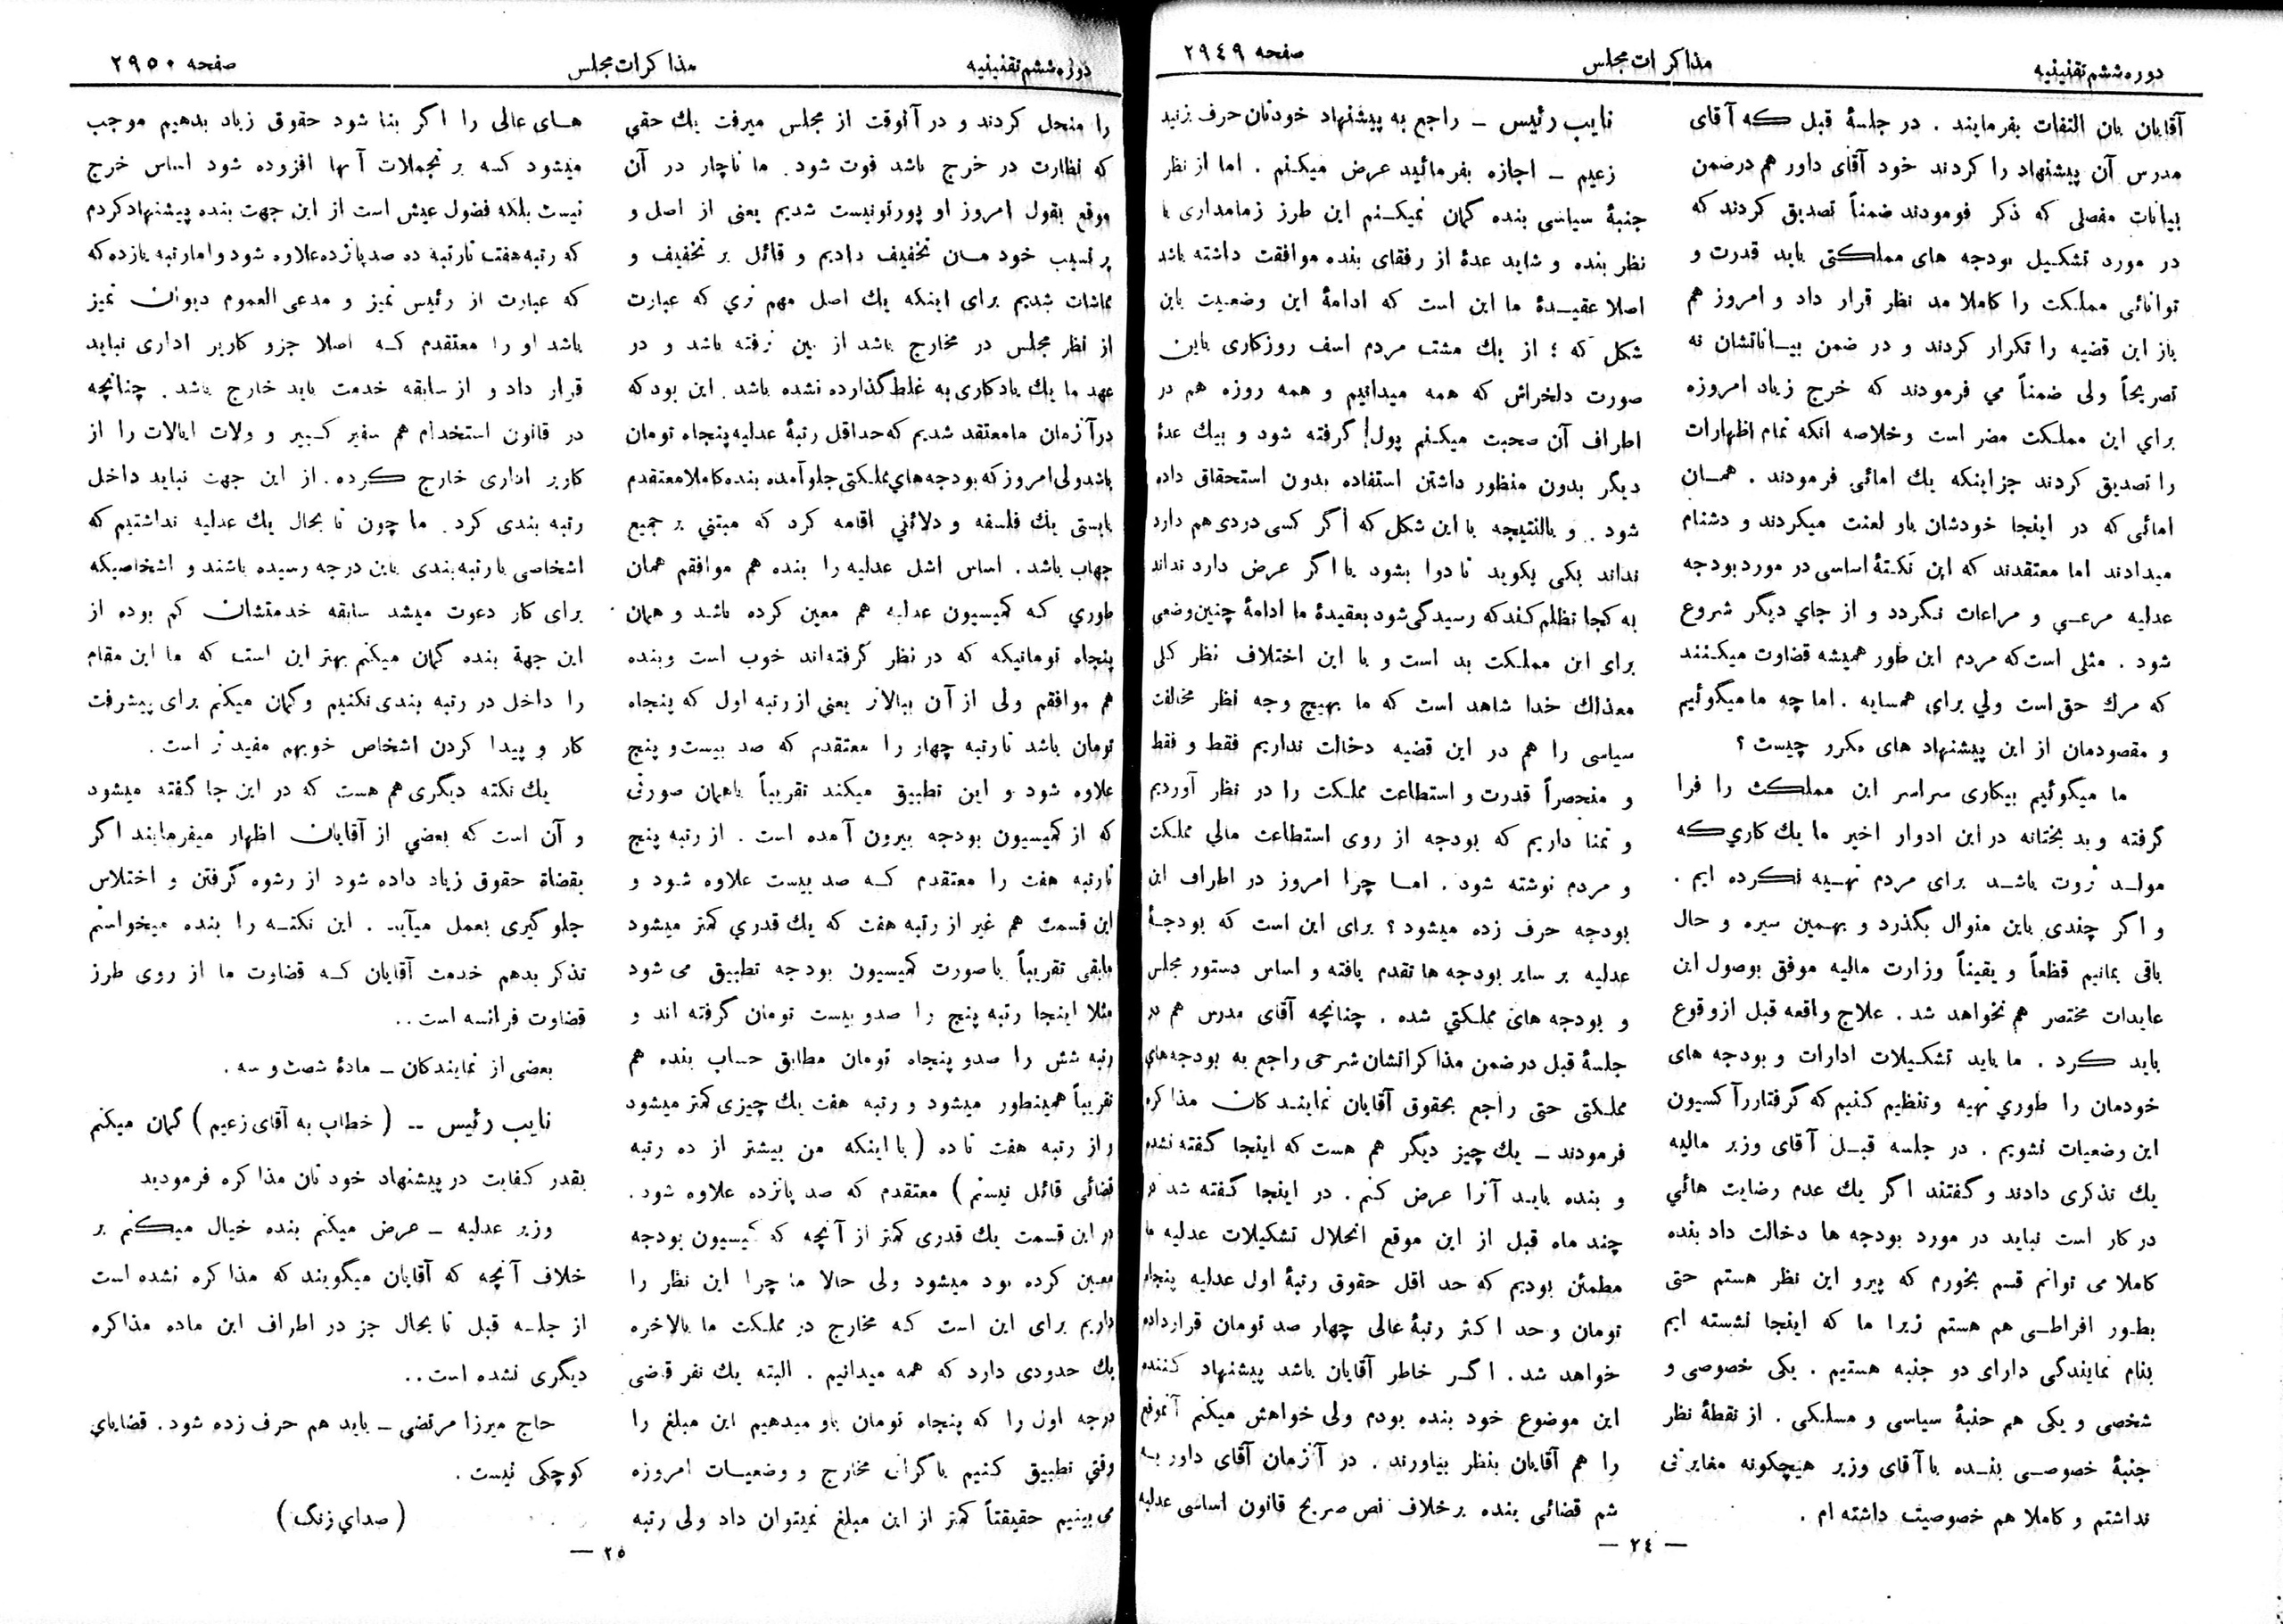 دوره ششم تقنینیه
مذاکرات مجلس
صفحه ۲۹٤۹
آقایان بان التفات بفرمایند . در جلسهٔ قبل که آقای
مدرس آن پیشنهاد را کردند خود آقای داور هم در ضمن
بیانات مفصلی که ذکر فومودند ضمناً تصدیق کردند که
در مورد تشکیل بودجه های مملکتی باید قدرت و
توانائی مملکت را کاملا مد نظر قرار داد و امروز هم
باز این قضیه را تکرار کردند و در ضمن بیاناتشان نه
تصریحاً ولی ضمناً می فرمودند که خرج زیاد امروزه
برای این مملکت مضر است و خلاصه آنکه تمام اظهارات
را تصدیق کردند جز اینکه یك امائی فرمودند . همان
امائی که در اینجا خودشان باو لعنت میکردند و دشنام
میدادند اما معتقدند که این نکتهٔ اساسی در مورد بودجه
عدلیه مرعی و مراعات نگردد و از جای دیگر شروع
شود . مثلی است که مردم این طور همیشه قضاوت میکنند
که مرك حق است ولی برای همسایه . اما چه ما میگوئیم
و مقصودمان از این پیشنهاد های مکرر چیست ؟
ما میگوئیم بیکاری سراسر این مملکت را فرا
گرفته و بد بختانه در این ادوار اخیر ما یك کاری که
مولد ثروت باشد برای مردم تهیه نکرده ایم .
و اگر چندی باین منوال بگذرد و بهمین سیره و حال
باقی بمانیم قطعاً و یقیناً وزارت مالیه موفق بوصول این
عایدات مختصر هم نخواهد شد . علاج واقعه قبل از وقوع
باید کرد . ما باید تشکیلات ادارات و بودجه های
خودمان را طوری تهیه و تنظیم کنیم که گرفتار رآکسیون
این وضعیات نشویم . در جلسه قبل آقای وزیر مالیه
یك تذکری دادند و گفتند اگر یك عدم رضایت هائی
در کار است نباید در مورد بودجه ها دخالت داد بنده
کاملا می توانم قسم بخورم که پیرو این نظر هستم حتی
بطور افراطی هم هستم زیرا ما که اینجا نشسته ایم
بنام نمایندگی دارای دو جنبه هستیم . یکی خصوصی و
شخصی و یکی هم جنبهٔ سیاسی و مسلکی . از نقطهٔ نظر
جنبهٔ خصوصی بنده با آقای وزیر هیچگونه مغایرتی
نداشتم و کاملا هم خصوصیت داشته ام .
نایب رئیس ـ راجع به پیشنهاد خودتان حرف بزنید
زعیم ـ اجازه بفرمائید عرض میکنم . اما از نظر
جنبهٔ سیاسی بنده گمان نمیکنم این طرز زمامداری با
نظر بنده و شاید عدهٔ از رفقای بنده موافقت داشته باشد
اصلا عقیدهٔ ما این است که ادامهٔ این وضعیت باین
شکل که ؛ از یك مشت مردم اسف روزگاری باین
صورت دلخراش که همه میدانیم و همه روزه هم در
اطراف آن صحبت میکنم پول گرفته شود و بیك عدهٔ
دیگر بدون منظور داشتن استفاده بدون استحقاق داده
شود . و بالنتیجه با این شکل که اگر کسی دردی هم دارد
نداند بکی بگوید تا دوا بشود یا اگر عرض دارد نداند
به کجا تظلم کند که رسیدگی شود بعقیدهٔ ما ادامهٔ چنین وضعی
برای این مملکت بد است و با این اختلاف نظر کلی
معذالك خدا شاهد است که ما بهیچ وجه نظر مخالفت
سیاسی را هم در این قضیه دخالت نداریم فقط و فقط
و منحصراً قدرت و استطاعت مملکت را در نظر آوردیم
و تمنا داریم که بودجه از روی استطاعت مالی مملکت
و مردم نوشته شود . اما چرا امروز در اطراف این
بودجه حرف زده میشود ؟ برای این است که بودجهٔ
عدلیه بر سایر بودجه ها تقدم یافته و اساس دستور مجلس
و بودجه های مملکتی شده . چنانچه آقای مدرس هم در
جلسهٔ قبل در ضمن مذاکراتشان شرحی راجع به بودجه های
مملکتی حتی راجع بحقوق آقایان نمایندکان مذاکره
فرمودند ـ یك چیز دیگر هم هست که اینجا گفته نشده
و بنده باید آنرا عرض کنم . در اینجا گفته شد
چند ماه قبل از این موقع انحلال تشکیلات عدلیه ما
مطمئن بودیم که حد اقل حقوق رتبهٔ اول عدلیه پنجاه
تومان و حد اکثر رتبهٔ عالی چهار صد تومان قرار داده
خواهد شد . اگر خاطر آقایان باشد پیشنهاد کننده
این موضوع خود بنده بودم ولی خواهش میکنم آنموقع
را هم آقایان بنظر بیاورند . در آنزمان آقای داور به
شم قضائی بنده بر خلاف نص صریح قانون اساسی عدلیه
ـ ۲٤ ـ
دوره ششم تقنینیه
مذاکرات مجلس
صفحه ۲۹۵۰
را منحل کردند و در آنوقت از مجلس میرفت یك حقی
که نظارت در خرج باشد فوت شود . ما ناچار در آن
موقع بقول امروز اوپورتونیست شدیم یعنی از اصل و
پرنسیب خودمان تخفیف دادیم و قائل بر تخفیف و
مماشات شدیم برای اینکه یك اصل مهم تری که عبارت
از نظر مجلس در مخارج باشد از بین نرفته باشد و در
عهد ما یك یادکاری به غلط گذارده نشده باشد . این بود که
در آنزمان ما معتقد شدیم که حداقل رتبهٔ عدلیه پنجاه تومان
باشد ولی امروز که بودجه های مملکتی جلو آمده بنده کاملا معتقدم
بایستی یك فلسفه و دلائنی اقامه کرد که مبتنی بر جمیع
جهاب باشد . اساس اشل عدلیه را بنده هم موافقم همان
طوری که کمیسیون عدلیه هم معین کرده باشد و همان
پنجاه تومانیکه که در نظر گرفته‌اند خوب است و بنده
هم موافقم ولی از آن ببالاتر یعنی از رتبه اول که پنجاه
تومان باشد تا رتبه چهار را معتقدم که صد بیست و پنج
علاوه شود و این تطبیق میکند تقریباً باهمان صورتی
که از کمیسیون بودجه بیرون آمده است . از رتبه پنج
تا رتبه هفت را معتقدم که صد بیست علاوه شود و
این قسمت هم غیر از رتبه هفت که یك قدری کمتر میشود
مابقی تقریباً با صورت کمیسیون بودجه تطبیق می شود
مثلا اینجا رتبه پنج را صدو بیست تومان گرفته اند و
رتبه شش را صدو پنجاه تومان مطابق حساب بنده هم
تقریباً همینطور میشود و رتبه هفت یك چیزی کمتر میشود
و از رتبه هفت تا ده ( با اینکه من بیشتر از ده رتبه
قضائی قائل نیستم ) معتقدم که صد پانزده علاوه شود .
در این قسمت یك قدری کمتر از آنچه که کمیسیون بودجه
معین کرده بود میشود ولی حالا ما چرا این نظر را
داریم برای این است که مخارج در مملکت ما بالاخره
یك حدودی دارد که همه میدانیم . البته یك نفر قاضی
درجه اول را که پنجاه تومان باو میدهیم این مبلغ را
وقتی تطبیق کنیم با گرانی مخارج و وضعیات امروزه
می بینیم حقیقتاً کمتر از این مبلغ نمیتوان داد ولی رتبه
های عالی را اگر بنا شود حقوق زیاد بدهیم موجب
میشود که بر تجملات آنها افزوده شود اساس خرج
نیست بلکه فضول عیش است از این جهت بنده پیشنهاد کردم
که رتبه هفت تا رتبه ده صد پانزده علاوه شود و اما رتبه یازده که
که عبارت از رئیس تمیز و مدعی العموم دیوان تمیز
باشد او را معتقدم که اصلا جزو کاربر اداری نباید
قرار داد و از سابقه خدمت باید خارج باشد . چنانچه
در قانون استخدام هم سفیر کبیر و ولات ایالات را از
کاربر اداری خارج کرده . از این جهت نباید داخل
رتبه بندی کرد . ما چون تا بحال یك عدلیه نداشتیم که
اشخاصی با رتبه بندی باین درجه رسیده باشند و اشخاصیکه
برای کار دعوت میشد سابقه خدمتشان کم بوده از
این جهة بنده گمان میکنم بهتر این است که ما این مقام
را داخل در رتبه بندی نکنیم و گمان میکنم برای پیشرفت
کار و پیدا کردن اشخاص خوبهم مفید تر است .
یك نکته دیگری هم هست که در این جا گفته میشود
و آن است که بعضی از آقایان اظهار میفرمایند اگر
بقضاة حقوق زیاد داده شود از رشوه گرفتن و اختلاس
جلو گیری بعمل میآید . این نکته را بنده میخواستم
تذکر بدهم خدمت آقایان که قضاوت ما از روی طرز
قضاوت فرانسه است ..
بعضی از نمایندکان ـ مادهٔ شصت و سه .
نایب رئیس ـ ( خطاب به آقای زعیم ) گمان میکنم
بقدر کفایت در پیشنهاد خودتان مذاکره فرمودید
وزیر عدلیه ـ عرض میکنم بنده خیال میکنم بر
خلاف آنچه که آقایان میگویند که مذاکره نشده است
از جلسه قبل تا بحال جز در اطراف این ماده مذاکره
دیگری نشده است ..
حاج میرزا مرتضی ـ باید هم حرف زده شود . قضایای
کوچکی نیست .
( صدای زنگ )
ـ ۲۵